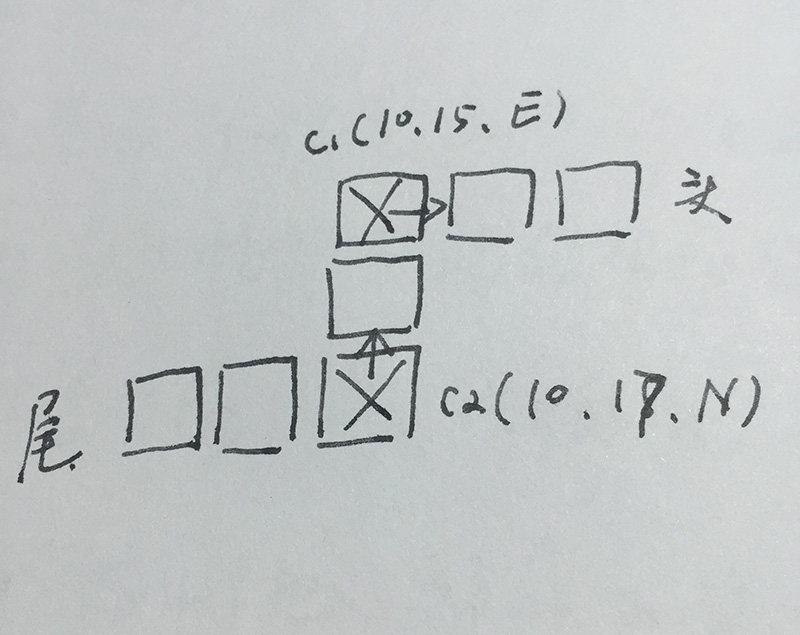 C1(10.15.E)
头
尾
C2(10.17.N)